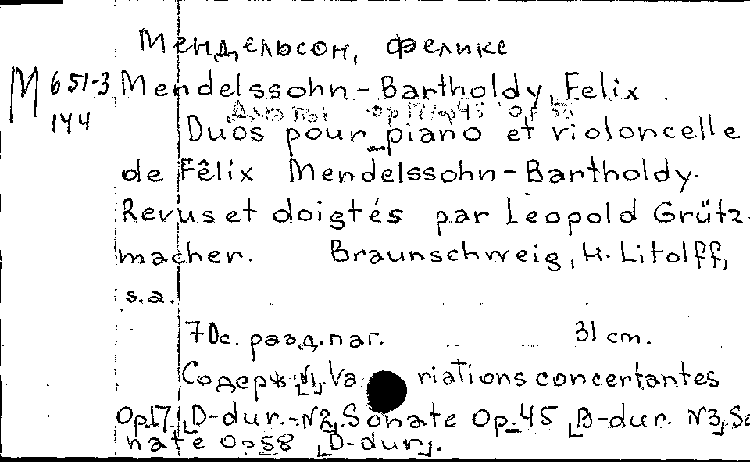 Мендельсон, Феликс
M 651-3 Mendelssohn-Bartholdy, Felix
144
Duos pour piano et violoncelle
de Fêlix Mendelssohn-Bartholdy.
Revus et doigtés par Leopold Grütz-
macher. Braunschweig, H. Litolff,
s.a.
70c. разд. паг. 31 cm.
Содерж: N1, Variations concertantes
Op.17 [D-dur.-N2, Sonate Op.45 [B-dur. N3, So
nate Op58 [D-dur].